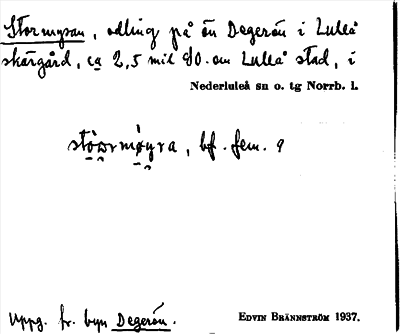 Stormyran, odling på ön Degerön i Luleå
skärgård, ca 2,5 mil SO. om Luleå stad, i
Nederluleå sn o. tg Norrb. l.
stöɷrmøyra, bf. fem. 9
Uppg. fr. byn Degerön.
EDVIN BRÄNNSTRÖM 1937.